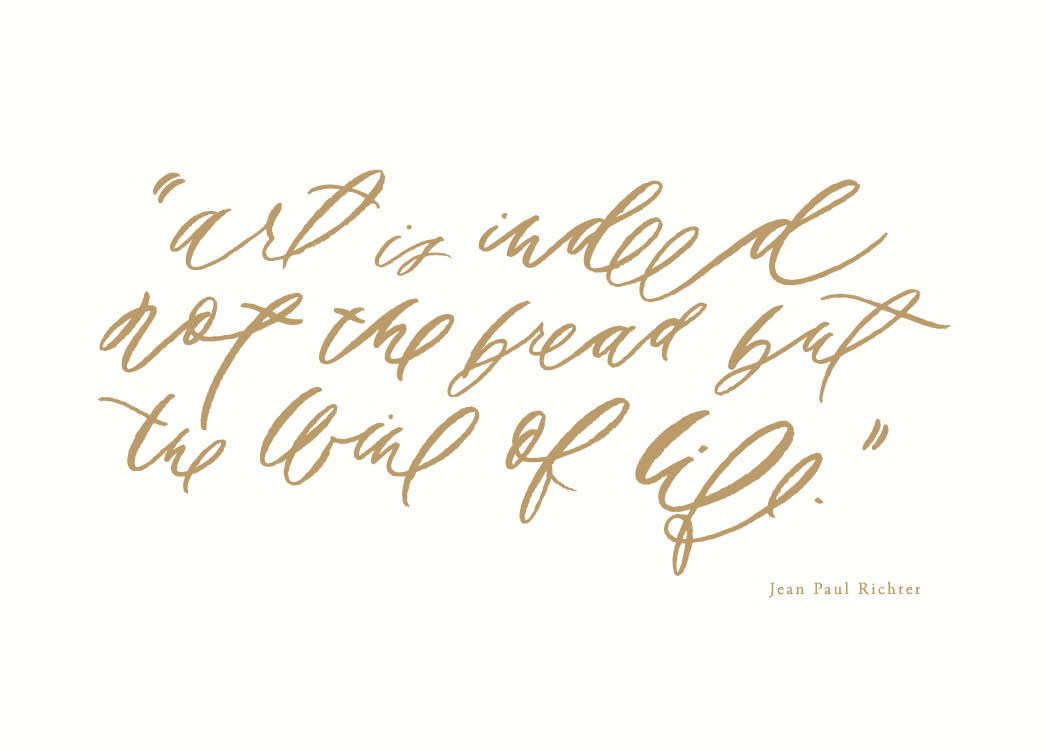 "art is indeed
not the bread but
the wine of life."
Jean Paul Richter